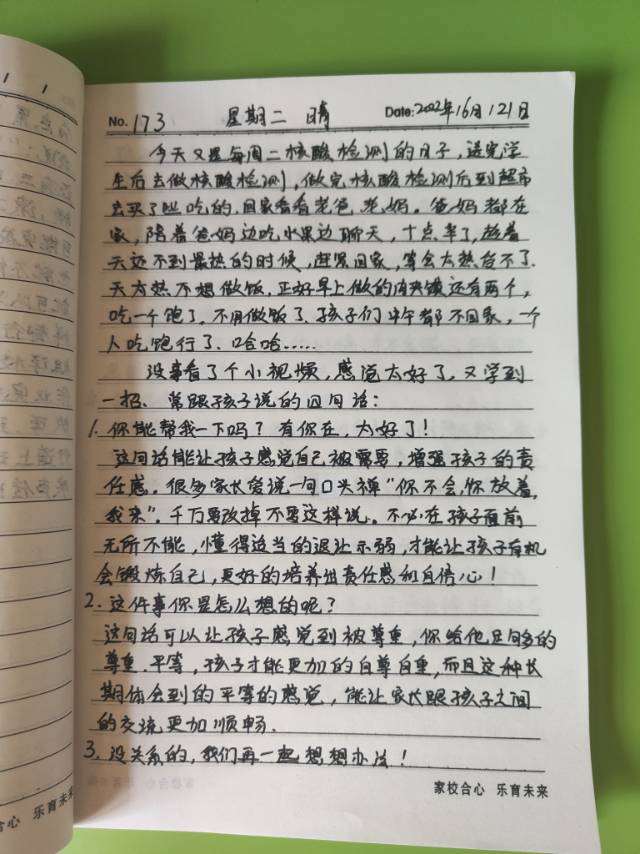 No. 173 星期二 晴 Date: 2022年6月21日
今天又是每周二核酸检测的日子,送完学
生后去做核酸检测,做完核酸检测后到超市
去买了些吃的,回家看看老爸、老妈。爸妈都在
家,陪着爸妈边吃水果边聊天,十点半了,趁着
天还不到最热的时候,赶紧回家,等会太热台不了.
天太热不想做饭,正好早上做的肉夹馍还有两个,
吃一个饱了,不用做饭了.孩子们中午都不回家,一个
人吃饱行了.哈哈……
没事看了个小视频,感觉太好了,又学到
一招、常跟孩子说的四句话:
1. 你能帮我一下吗?有你在,太好了!
这句话能让孩子感觉自己被需要,增强孩子的责
任感。很多家长爱说一句口头禅"你不会,你放着,
我来".千万要改掉不要这样说。不必在孩子面前
无所不能,懂得适当的退让示弱,才能让孩子有机
会锻炼自己,更好的培养出责任感和自信心!
2. 这件事你是怎么想的呢?
这句话可以让孩子感觉到被尊重,你给他足够多的
尊重.平等,孩子才能更加的自尊自重,而且这种长
期体会到的平等的感觉,能让家长跟孩子之间
的交流更加顺畅.
3. 没关系的,我们再一起想想办法!
家校合心 乐育未来
合心 乐育未来